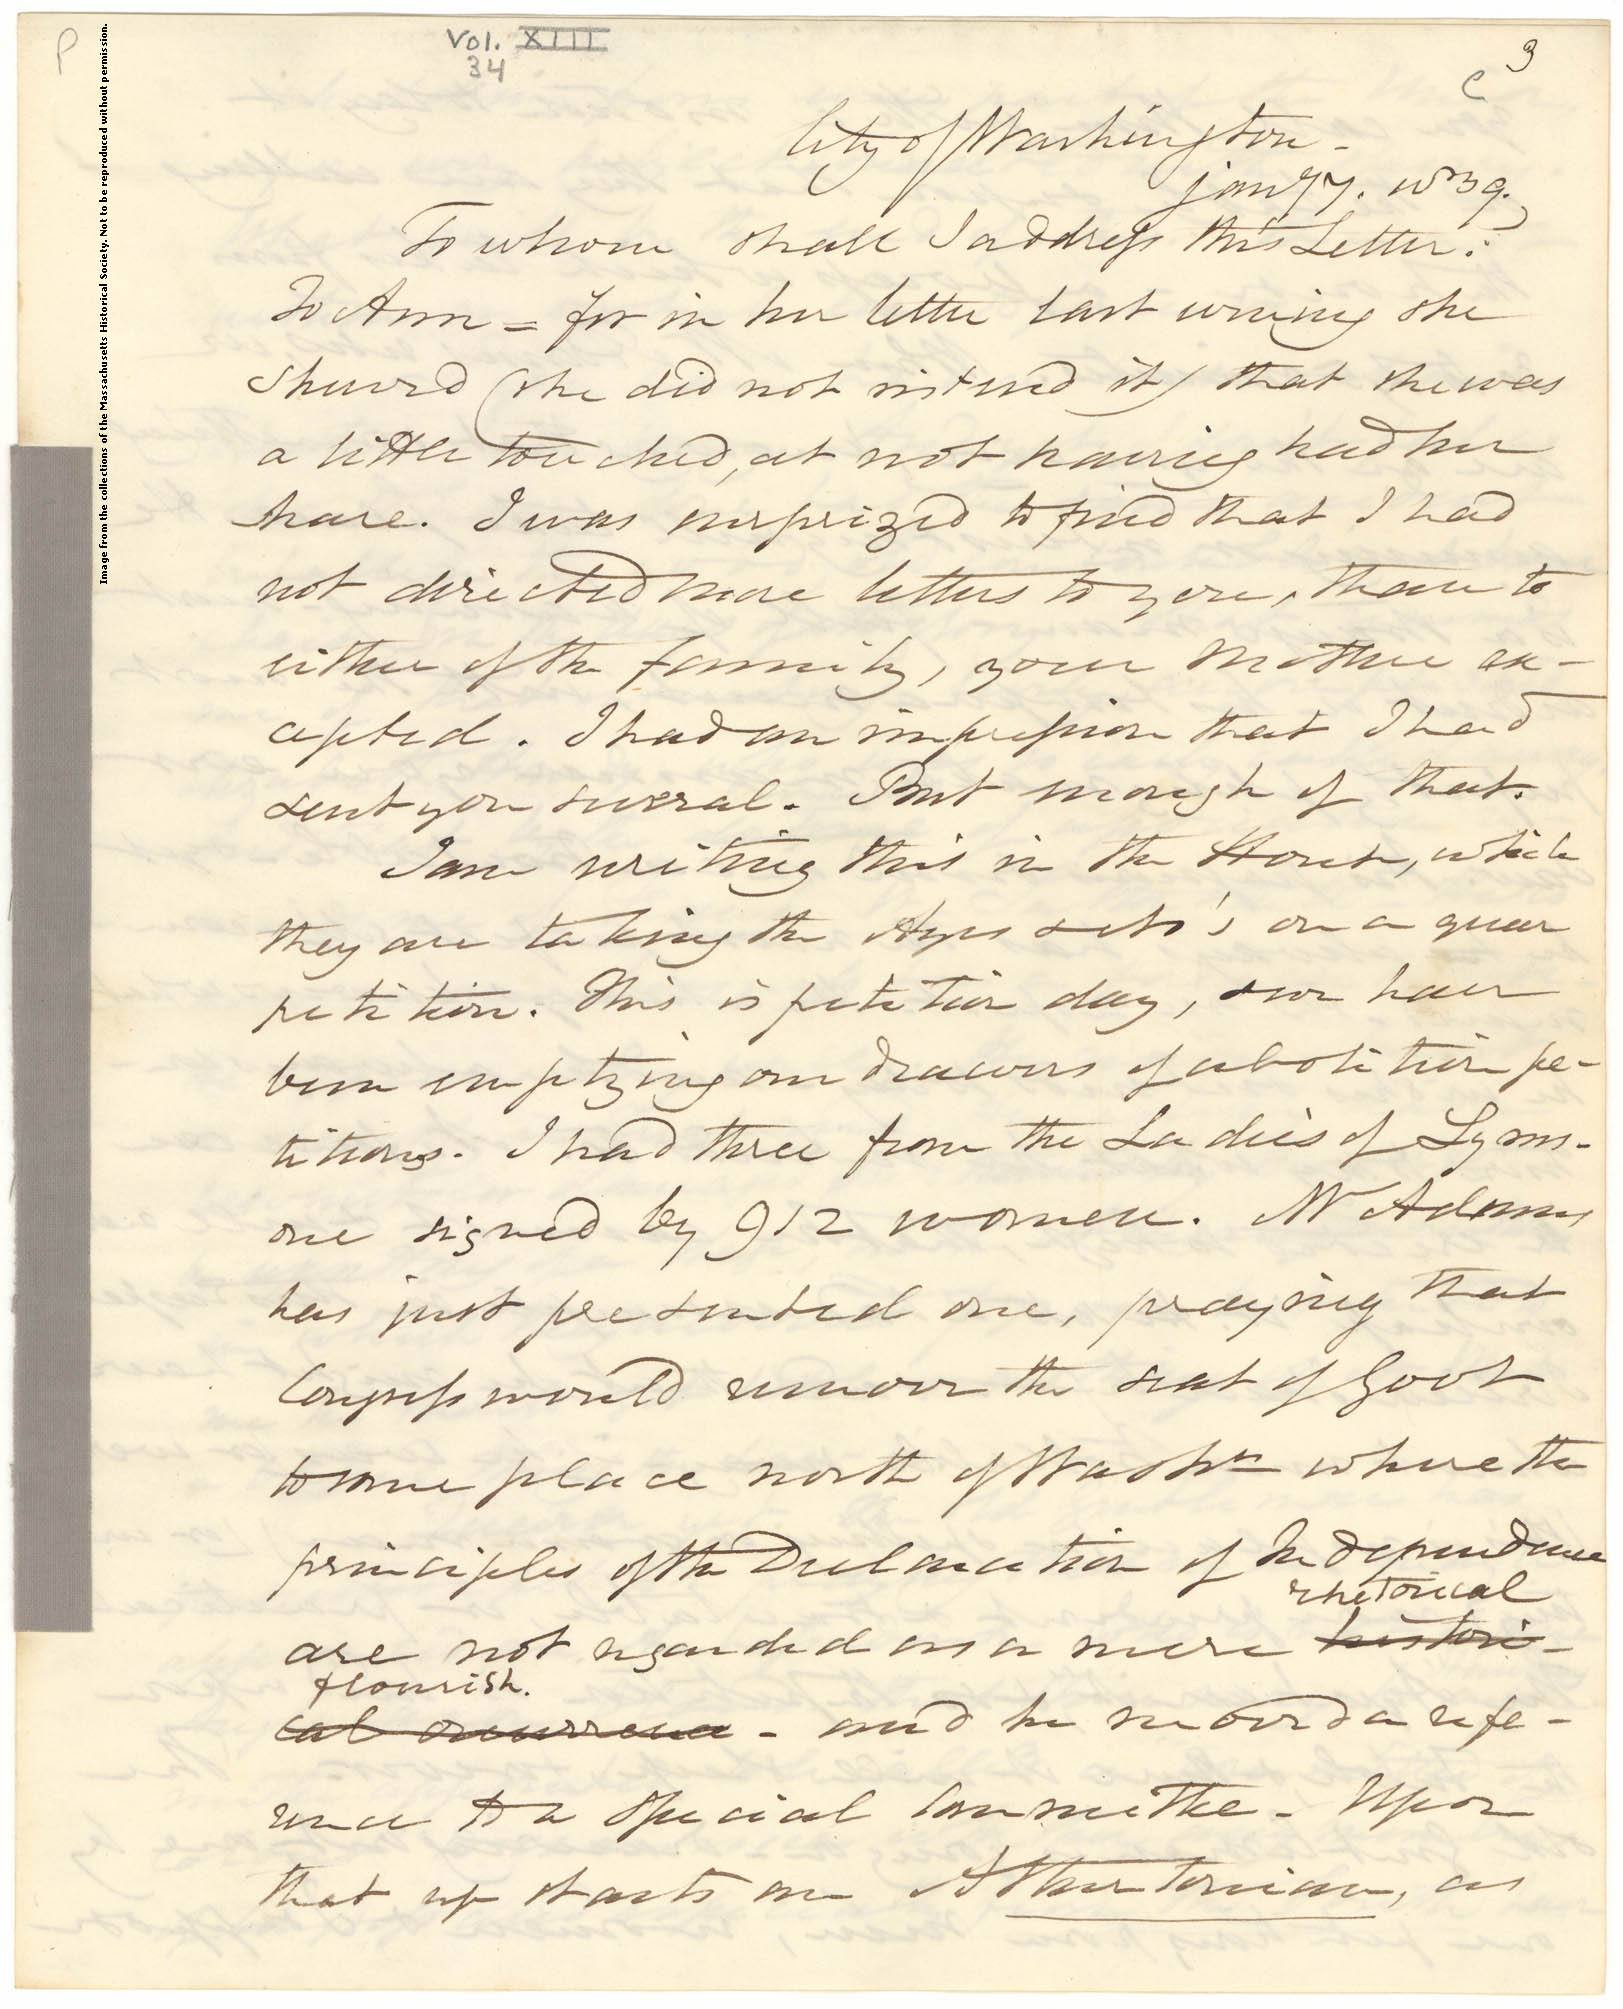 P
Vol. XIII
34
3
c
Image from the collections of the Massachusetts Historical Society. Not to be reproduced without permission.
City of Washington -
jany 7. 1839.
To whom shall I address this Letter?
To Ann = for in her letter last evening she
showed (she did not intend it) that she was
a little touched, at not having had her
share. I was surprized to find that I had
not directed more letters to you, than to
either of the family, your Mother ex-
cepted. I had an impression that I had
sent you several. But enough of that.
I am writing this in the House, while
they are taking the Ayes & No's on a queer
petition. This is petition day, & we have
been emptying our drawers of abolition pe-
titions. I had three from the Ladies of Lynn -
one signed by 912 women. Mr Adams
has just presented one, praying that
Congress would remove the seat of Govt
to some place north of Washn where the
principles of the Declaration of Independence
rhetorical
are not regarded as a mere histori-
flourish.
cal occurrence - and he moved a refe-
rence to a special Committee - Upon
that up starts an Athertonian, as